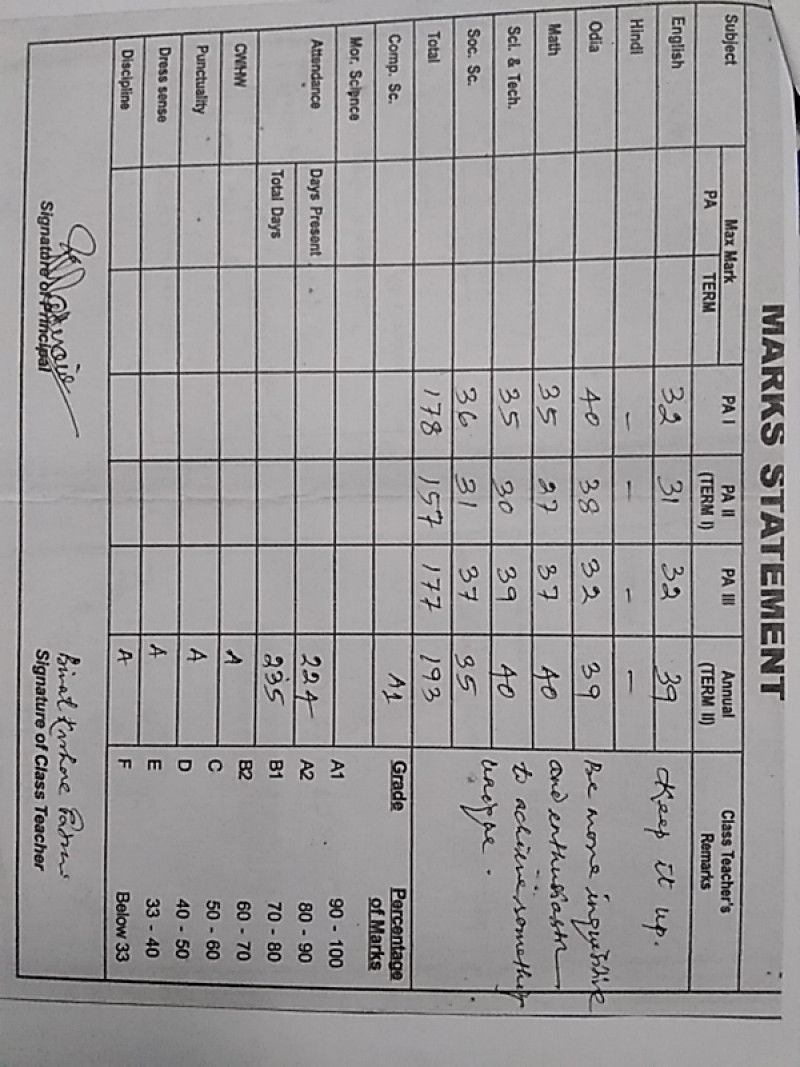 MARKS STATEMENT
Subject Max Mark PA I PA II PA III Annual Class Teacher's
PA TERM (TERM I) (TERM II) Remarks
English 32 31 32 39 Keep it up.
Hindi – – – –
Odia 40 38 32 39 Be more inquisitive
Math 35 27 37 40 and enthusiastic
Sci. & Tech. 35 30 39 40 to achieve something
Soc. Sc. 36 31 37 35 unique.
Total 178 157 177 193
Comp. Sc. A1 Grade Percentage
of Marks
Mor. Science A1 90 - 100
Attendance Days Present 224 A2 80 - 90
Total Days 235 B1 70 - 80
CW/HW A B2 60 - 70
Punctuality A C 50 - 60
D 40 - 50
Dress sense A E 33 - 40
Discipline A F Below 33
Signature of Principal Signature of Class Teacher